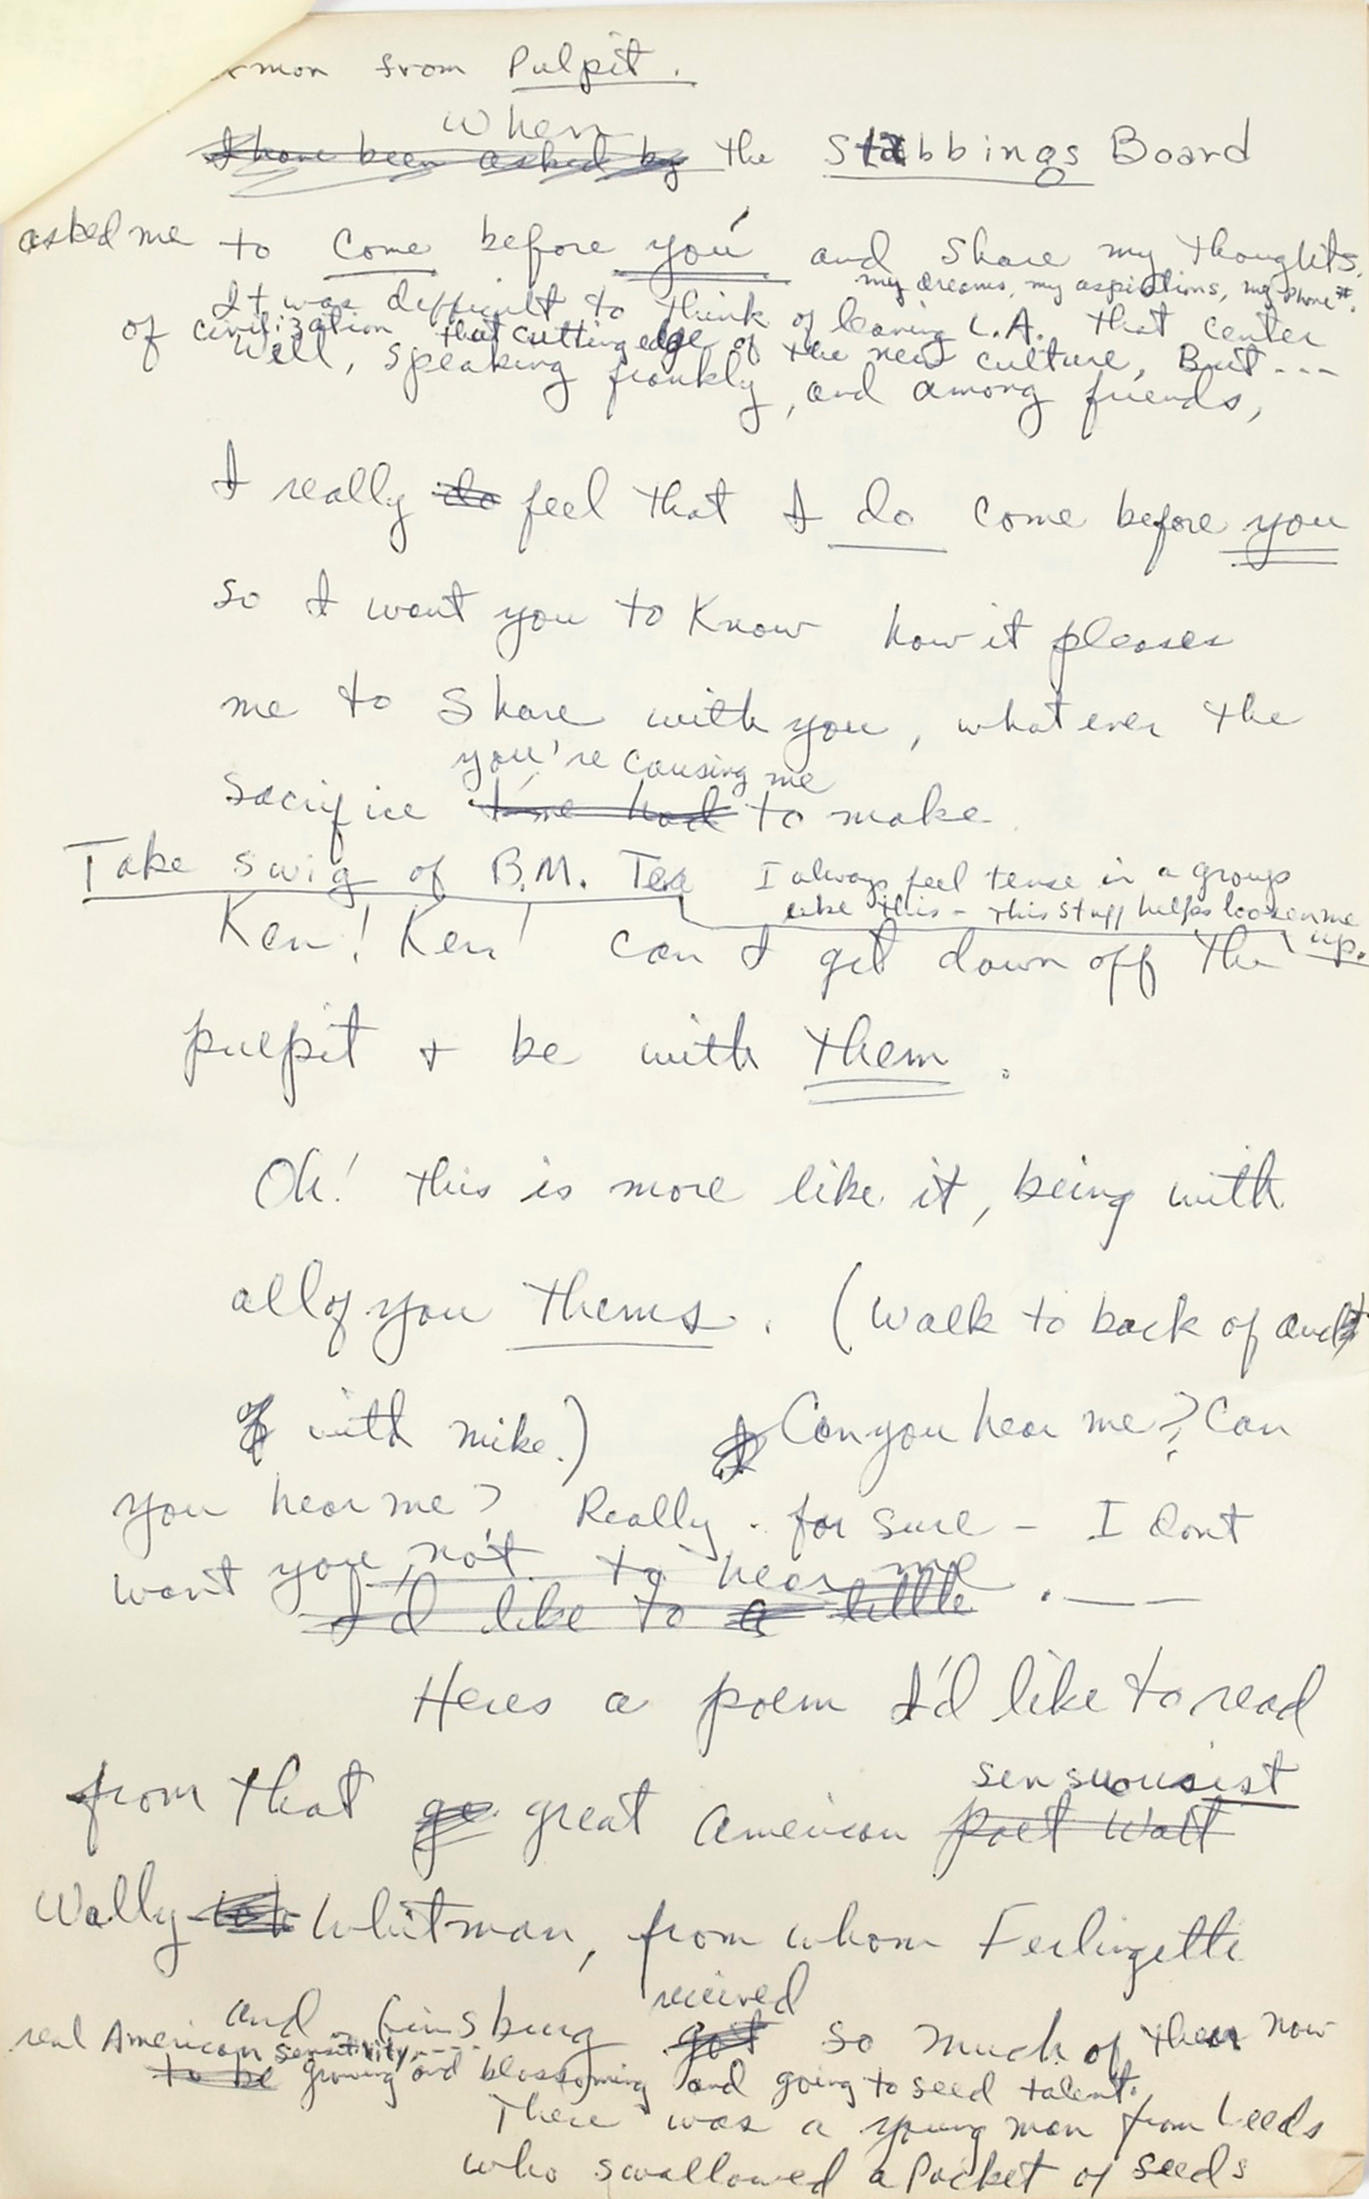 rmon from Pulpit.
When
I have been asked by the Stabbings Board
asked me to come before you and share my thoughts.
my dreams, my aspirations, my phone #.
It was difficult to think of leaving L.A. that center
of civilization that cutting edge of the new culture, But ---
Well, speaking frankly, and among friends,
I really do feel that I do come before you
so I want you to know how it pleases
me to share with you, whatever the
you're causing me
sacrifice I've had to make
Take swig of B.M. Tea I always feel tense in a group
like this - This stuff helps loosen me
up.
Ken! Ken! can I get down off the
pulpit + be with them.
Oh! this is more like it, being with
all of you thems. (Walk to back of aud
with mike.) Can you hear me? Can
you hear me? Really - for sure - I dont
want you, not to hear me. ——
I'd like to a little
Heres a poem I'd like to read
sensuousist
from that great American poet Walt
Wally Whitman, from whom Ferlingetti
received
and Ginsburg got so much of their now
real American sensitivity, ----
to be growing and blossoming and going to seed talent.
There was a young man from Leeds
who swallowed a Packet of seeds